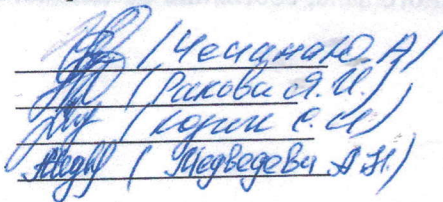 (Чепинаю. А)
(Ракова Я. И.)
(Корик С. И)
(Медведева А. Н.)